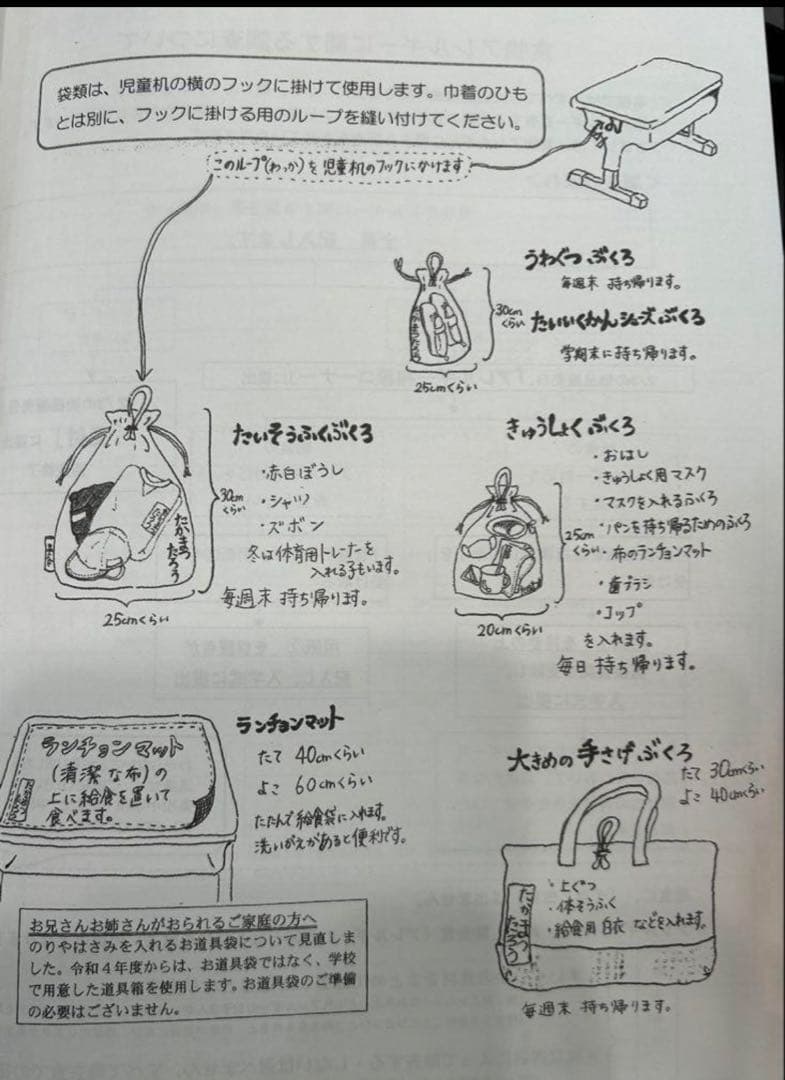 袋類は、児童机の横のフックに掛けて使用します。巾着のひも
とは別に、フックに掛ける用のループを縫い付けてください。
このループ(わっか)を児童机のフックにかけます
うわぐつぶくろ
毎週末 持ち帰ります。
たいいくかんシューズぶくろ
学期末に持ち帰ります。
30cm
くらい
25cmくらい
たいそうふくぶくろ
・赤白ぼうし
・シャツ
・ズボン
冬は体育用トレーナーを
入れる子もいます。
毎週末 持ち帰ります。
30cm
くらい
たかまつ
たろう
25cmくらい
きゅうしょくぶくろ
・おはし
・きゅうしょく用マスク
・マスクを入れるふくろ
・パンを持ち帰るためのふくろ
・布のランチョンマット
・歯ブラシ
・コップ
を入れます。
毎日 持ち帰ります。
25cm
くらい
20cmくらい
ランチョンマット
たて 40cmくらい
よこ 60cmくらい
たたんで給食袋に入れます。
洗いがえがあると便利です。
ランチョンマット
(清潔な布)の
上に給食を置いて
食べます。
大きめの手さげぶくろ
たて 30cmくらい
よこ 40cmくらい
たかまつ
たろう
・上ぐつ
・体そうふく
・給食用白衣 などを入れます。
毎週末 持ち帰ります。
お兄さんお姉さんがおられるご家庭の方へ
のりやはさみを入れるお道具袋について見直しま
した。令和4年度からは、お道具袋ではなく、学校
で用意した道具箱を使用します。お道具袋のご準備
の必要はございません。